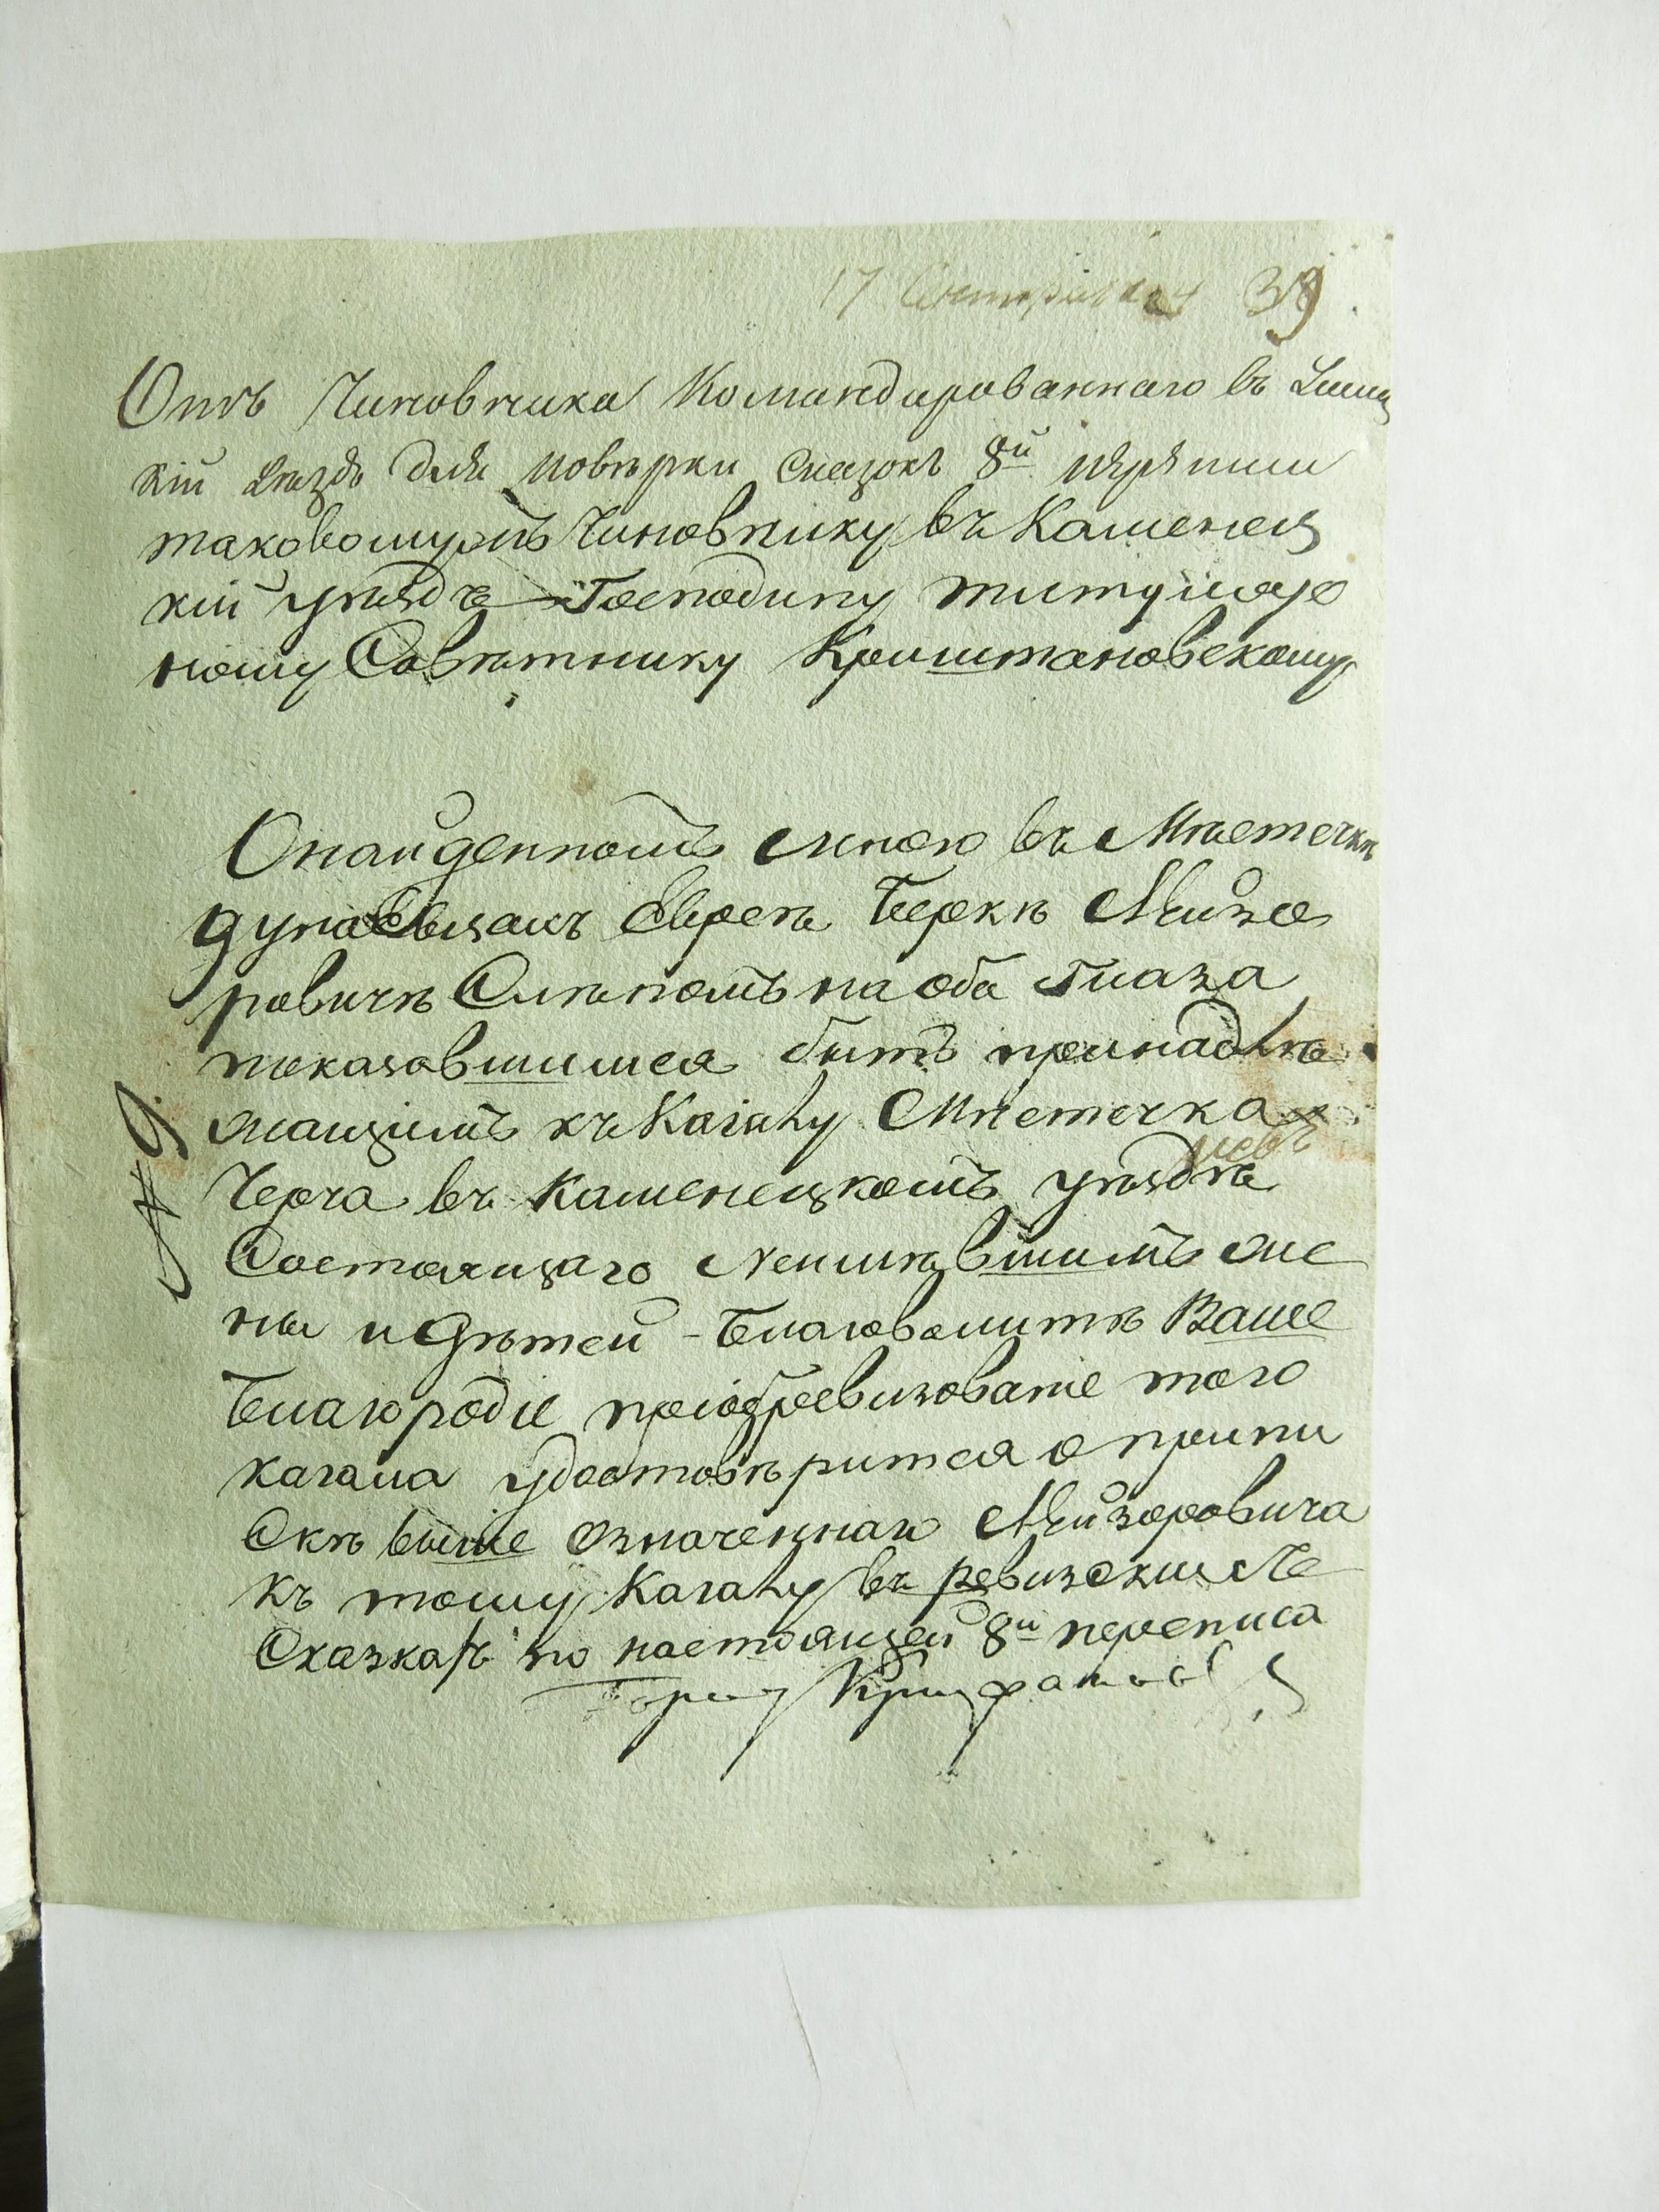 17 Октября 39
Отъ Чиновника Командированнаго въ Ушиц
кій уѣздъ для повѣрки сказокъ 8й перѣписи
таковомужъ Чиновнику въ Каменец
кій уѣздъ Господину титуляр
ному Совѣтнику Крыштановскому
О найденномъ мною въ Мѣстечкѣ
дунаевцахъ Евреѣ Беркѣ Мейзе
ровичѣ Слѣпомъ на оба глаза
показавшимся быть принадлѣ
жащимъ къ Кагалу Мѣстечка
Черча въ Каменецкомъ уѣздѣ
Состоящаго Неимѣвшимъ же
ны и дѣтей - Благоволитъ Ваше
Благородіе при обревизованіе того
кагала удостовѣрится о припи
Скѣ выше означеннаго Мейзеровича
къ тому Кагалу въ ревизские
Сказкахъ по настоящей 8й переписи
№ 9.